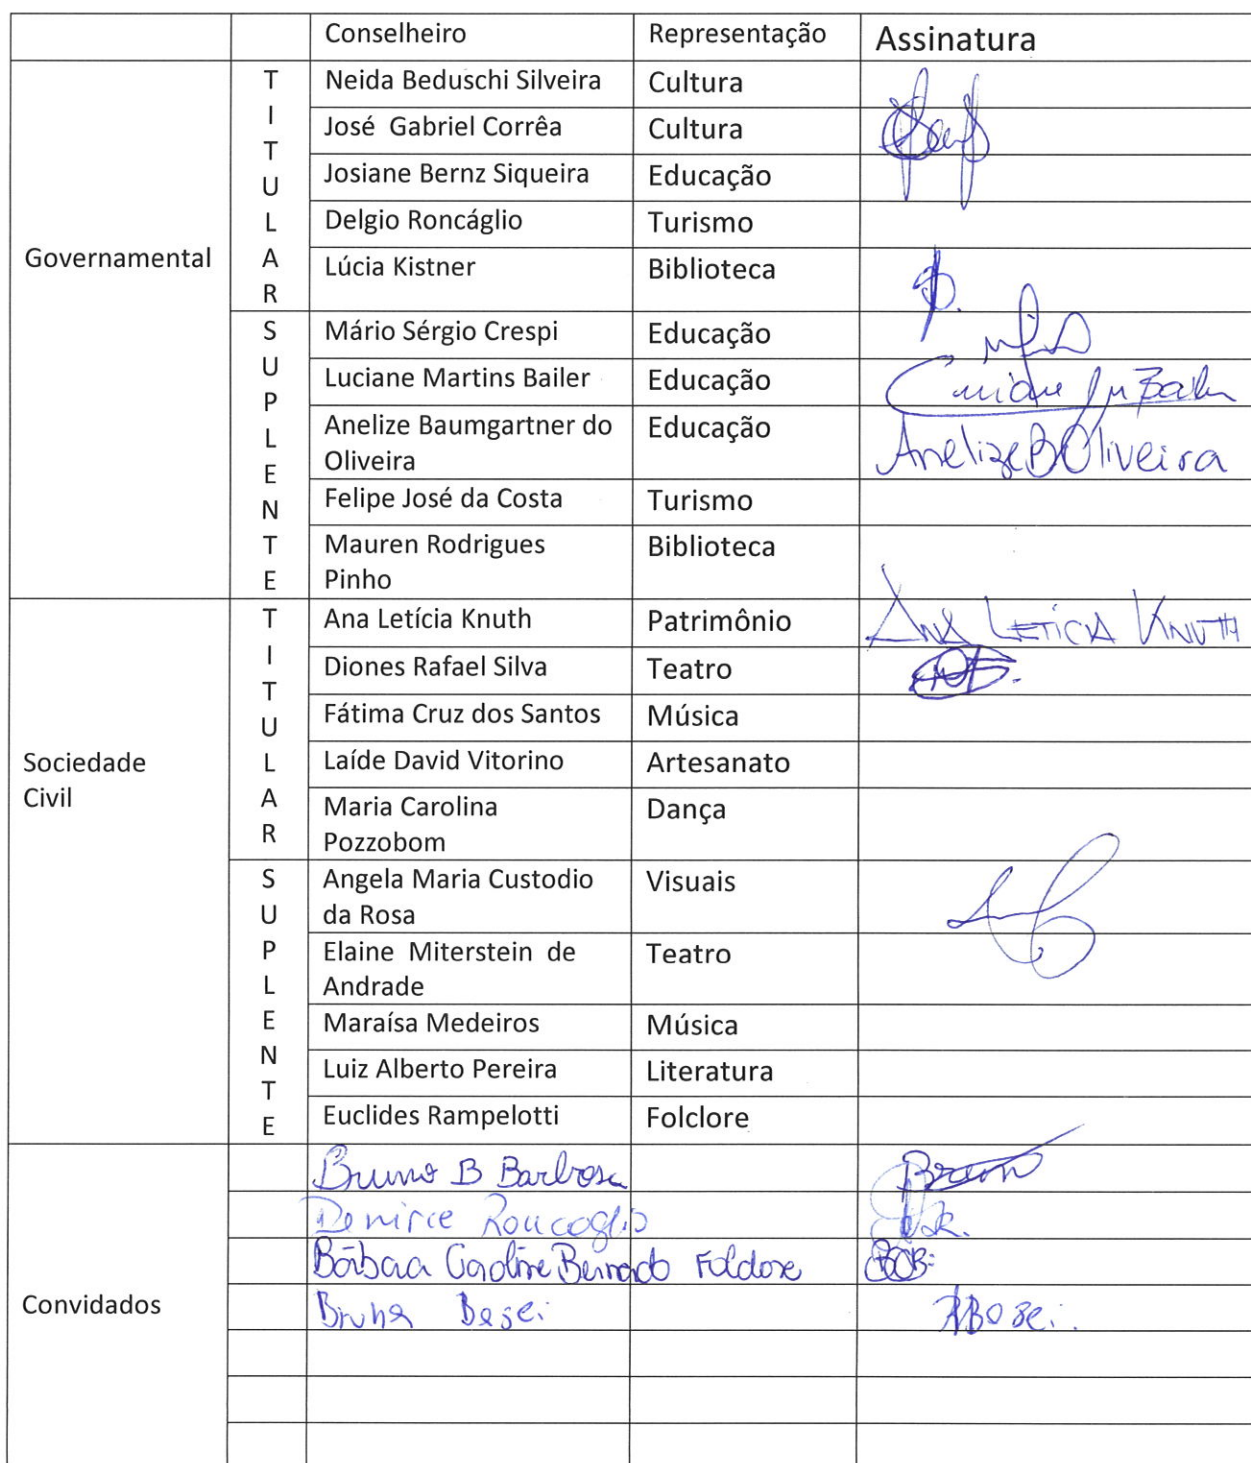 Conselheiro Representação Assinatura
Governamental
TITULAR
Neida Beduschi Silveira Cultura
José Gabriel Corrêa Cultura
Josiane Bernz Siqueira Educação
Delgio Roncáglio Turismo
Lúcia Kistner Biblioteca
SUPLENTE
Mário Sérgio Crespi Educação
Luciane Martins Bailer Educação
Anelize Baumgartner do Educação AnelizeBOliveira
Oliveira
Felipe José da Costa Turismo
Mauren Rodrigues Biblioteca
Pinho
Sociedade
Civil
TITULAR
Ana Letícia Knuth Patrimônio ANA LETÍCIA KNUTH
Diones Rafael Silva Teatro
Fátima Cruz dos Santos Música
Laíde David Vitorino Artesanato
Maria Carolina Dança
Pozzobom
SUPLENTE
Angela Maria Custodio Visuais
da Rosa
Elaine Miterstein de Teatro
Andrade
Maraísa Medeiros Música
Luiz Alberto Pereira Literatura
Euclides Rampelotti Folclore
Convidados
Bruno B Barbosa
Roncaglio
Caroline Bernardo Folclore
Bruna